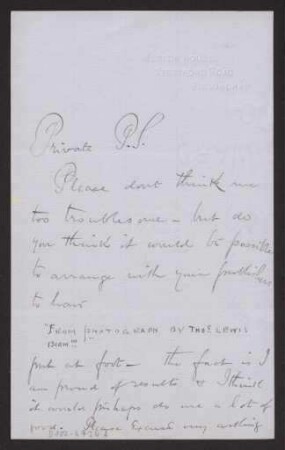 Private P.S.
Please dont think me
too troublesome – but do
you think it would be possible
to arrange with your publishers
to have
"FROM PHOTOGRAPH BY THOS LEWIS
BIRM"
put at foot – the fact is I
am proud of results & I think
it would perhaps do me a lot of
good. Please Excuse my writing